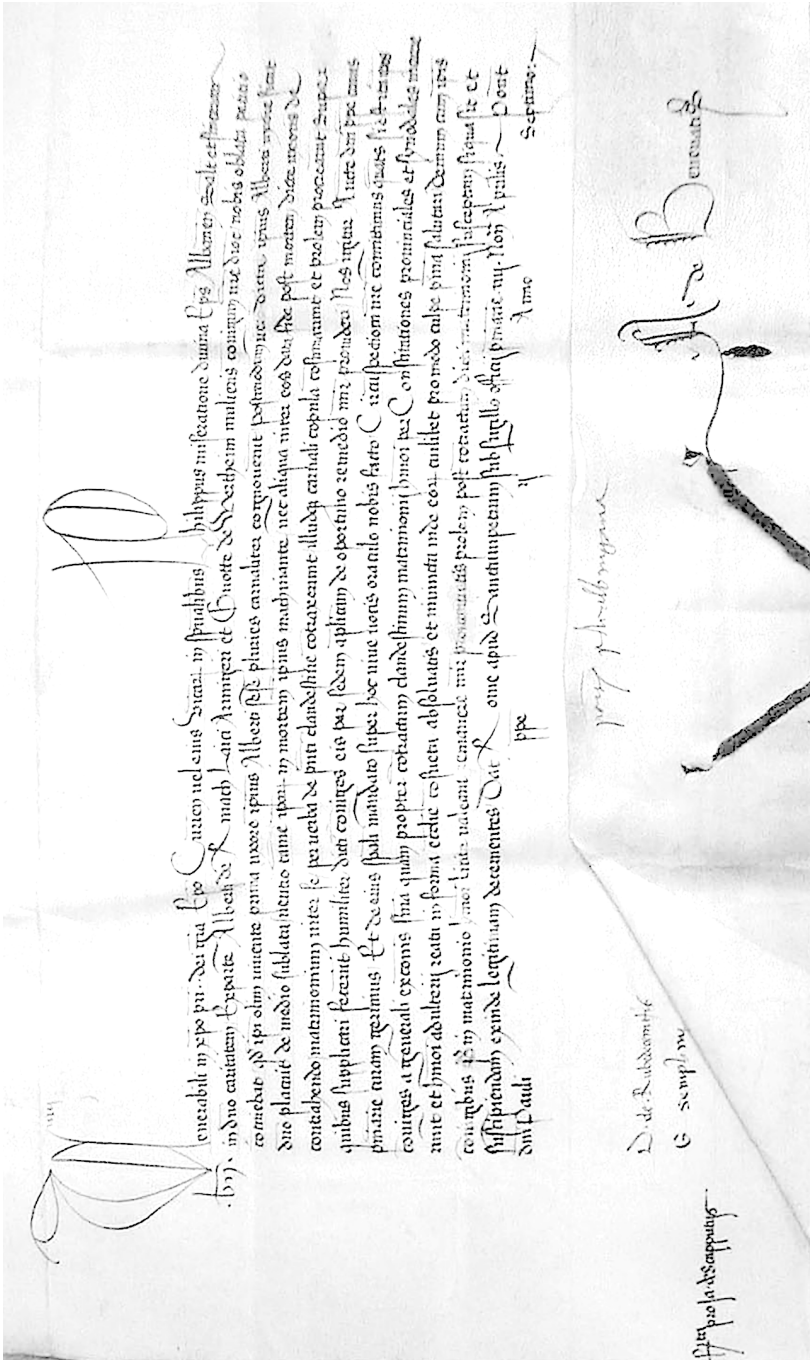 Venerabili in xpo pri dei gra Epo Curien vel eius Vicario in spualibus Philippus miseratione divina Eps Albanen Salt et sinceram
in dno caritatem Ex parte Alberti de R mach Laici Armigeri et Gnotte de Wertheim mulieris coniugum nre dioc nobis oblata peticio
cotinebat qd ipi olim vivente prima uxore ipius Alberti sese pluries carnaliter cognoverunt postmodum vero dicta ipius Alberti uxore sicut
dno placuit de medio sublata neutro tame ipor in mortem ipius machinante nec aliqua inter eos data fide post mortem dicte uxoris de
contrahendo matrimonium inter se per verba de pnti clandestine cotraxerunt illudq carnali copula cosumarunt et prolem procrearunt Super
quibus supplicari fecerunt humiliter dicti coniuges eis per sedem aplicam de oportuno remedio mir provideri Nos igitur Aucte dni ppe cuius
pmarie curam gerimus Et de eius spali mandato super hoc vive vocis oraculo nobis facto Circuspectioni vre comittimus quats si est ita ipos
coniuges a generali exconis snia quam propter cotractum clandestinum matrimonium hmoi per Constitutiones provinciales et synodales incurre
runt et hmoi adulterij reatu in forma ecclie cosueta absolvatis et iniuncta inde eor cuilibet pro modo culpe pnia salutari Demum cum ipis
coniugibus qd in matrimonio hmoi licite valeant remanere mir prolem post cotractum dicti matrimonij susceptam siqua sit et
suscipiendam exinde legitimam decernentes Dat Rome apud Sanctumpetrum sub sigillo officij pmarie iiij Non Aprilis Pont
dni Pauli ppe ij Anno Septimo
D. de Rubeacomitis
G Semplom
A. de Benevang